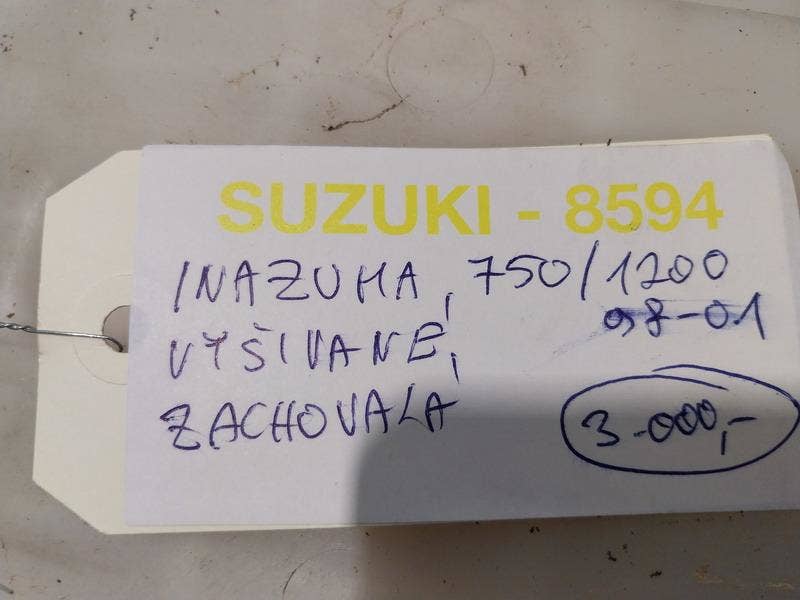 SUZUKI - 8594
INAZUMA, 750/1200
98-01
VYŠIVANE,
ZACHOVALA
3.000,-